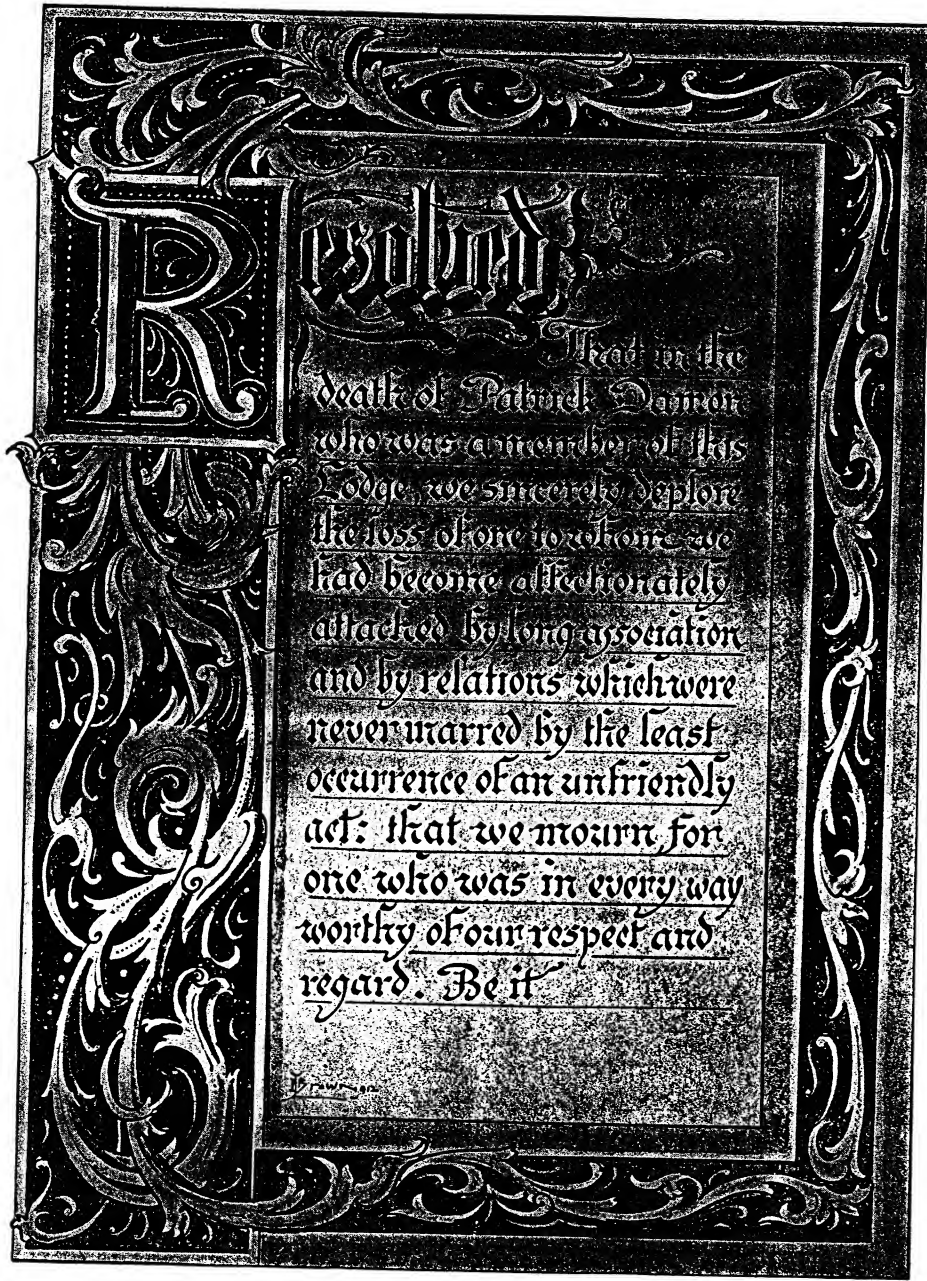 Resolved:
That in the
death of Patrick Damon
who was a member of this
Lodge, we sincerely deplore
the loss of one to whom we
had become affectionately
attached by long association
and by relations which were
never marred by the least
occurrence of an unfriendly
act: that we mourn for
one who was in every way
worthy of our respect and
regard. Be it